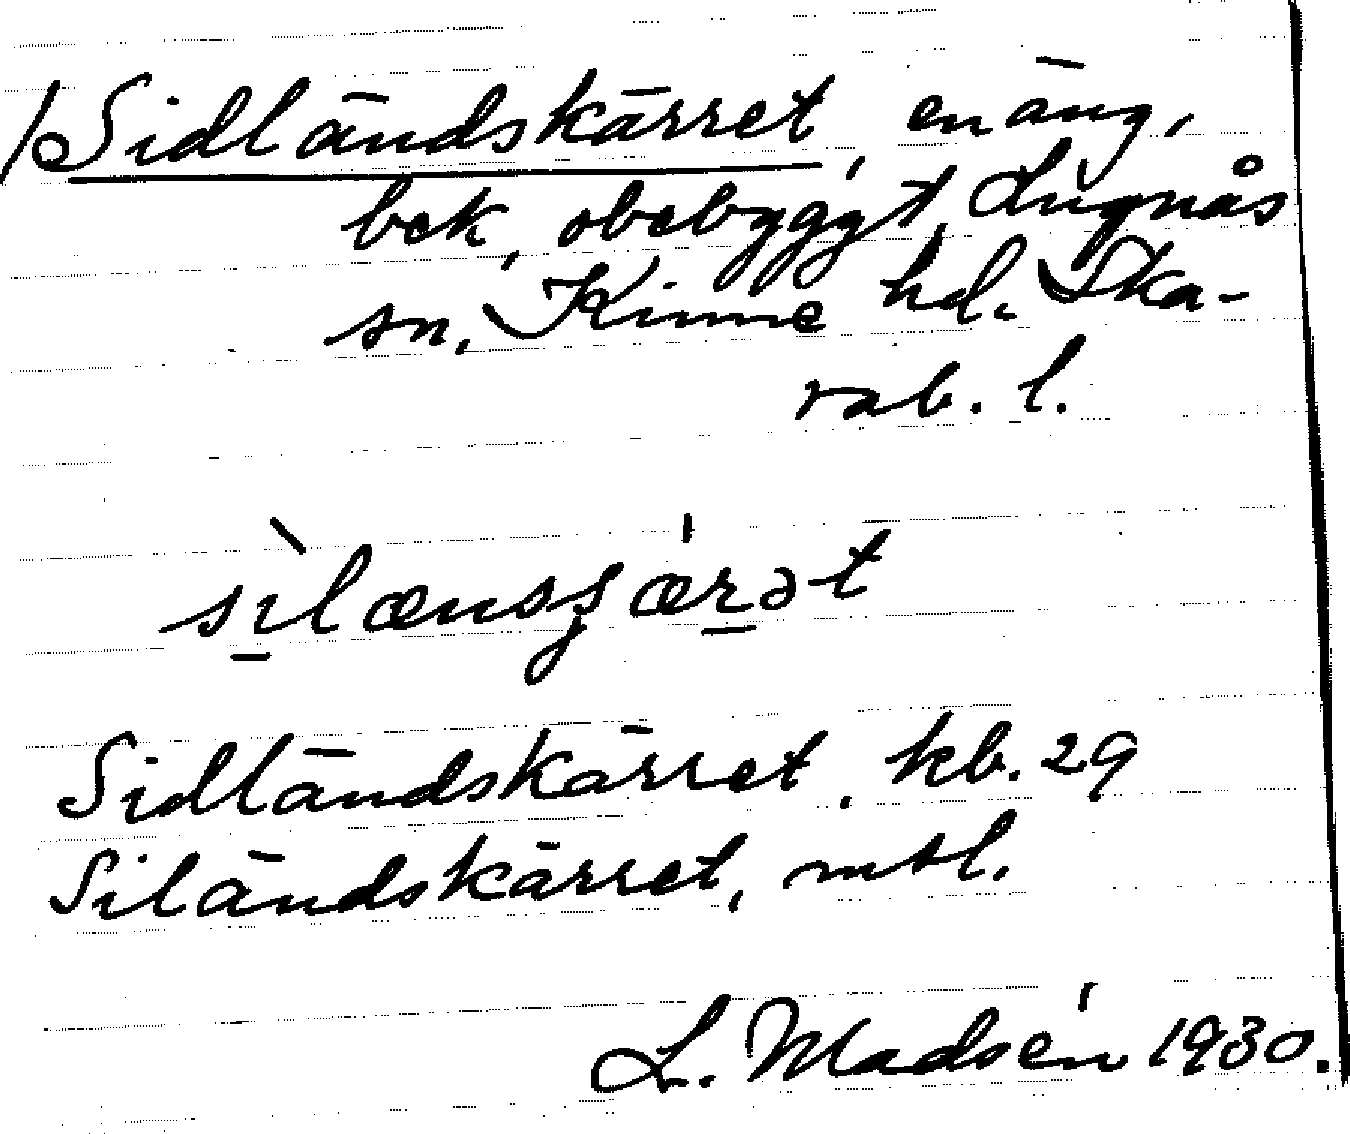 /Sidländskärret, en äng,
bek, obebyggt, Lugnås
sn, Kinne hd. Ska-
rab. l.
sìlænsʂǽrət
Sidländskärret, kb. 29
Siländskärret, mtl.
L. Madsén 1930.